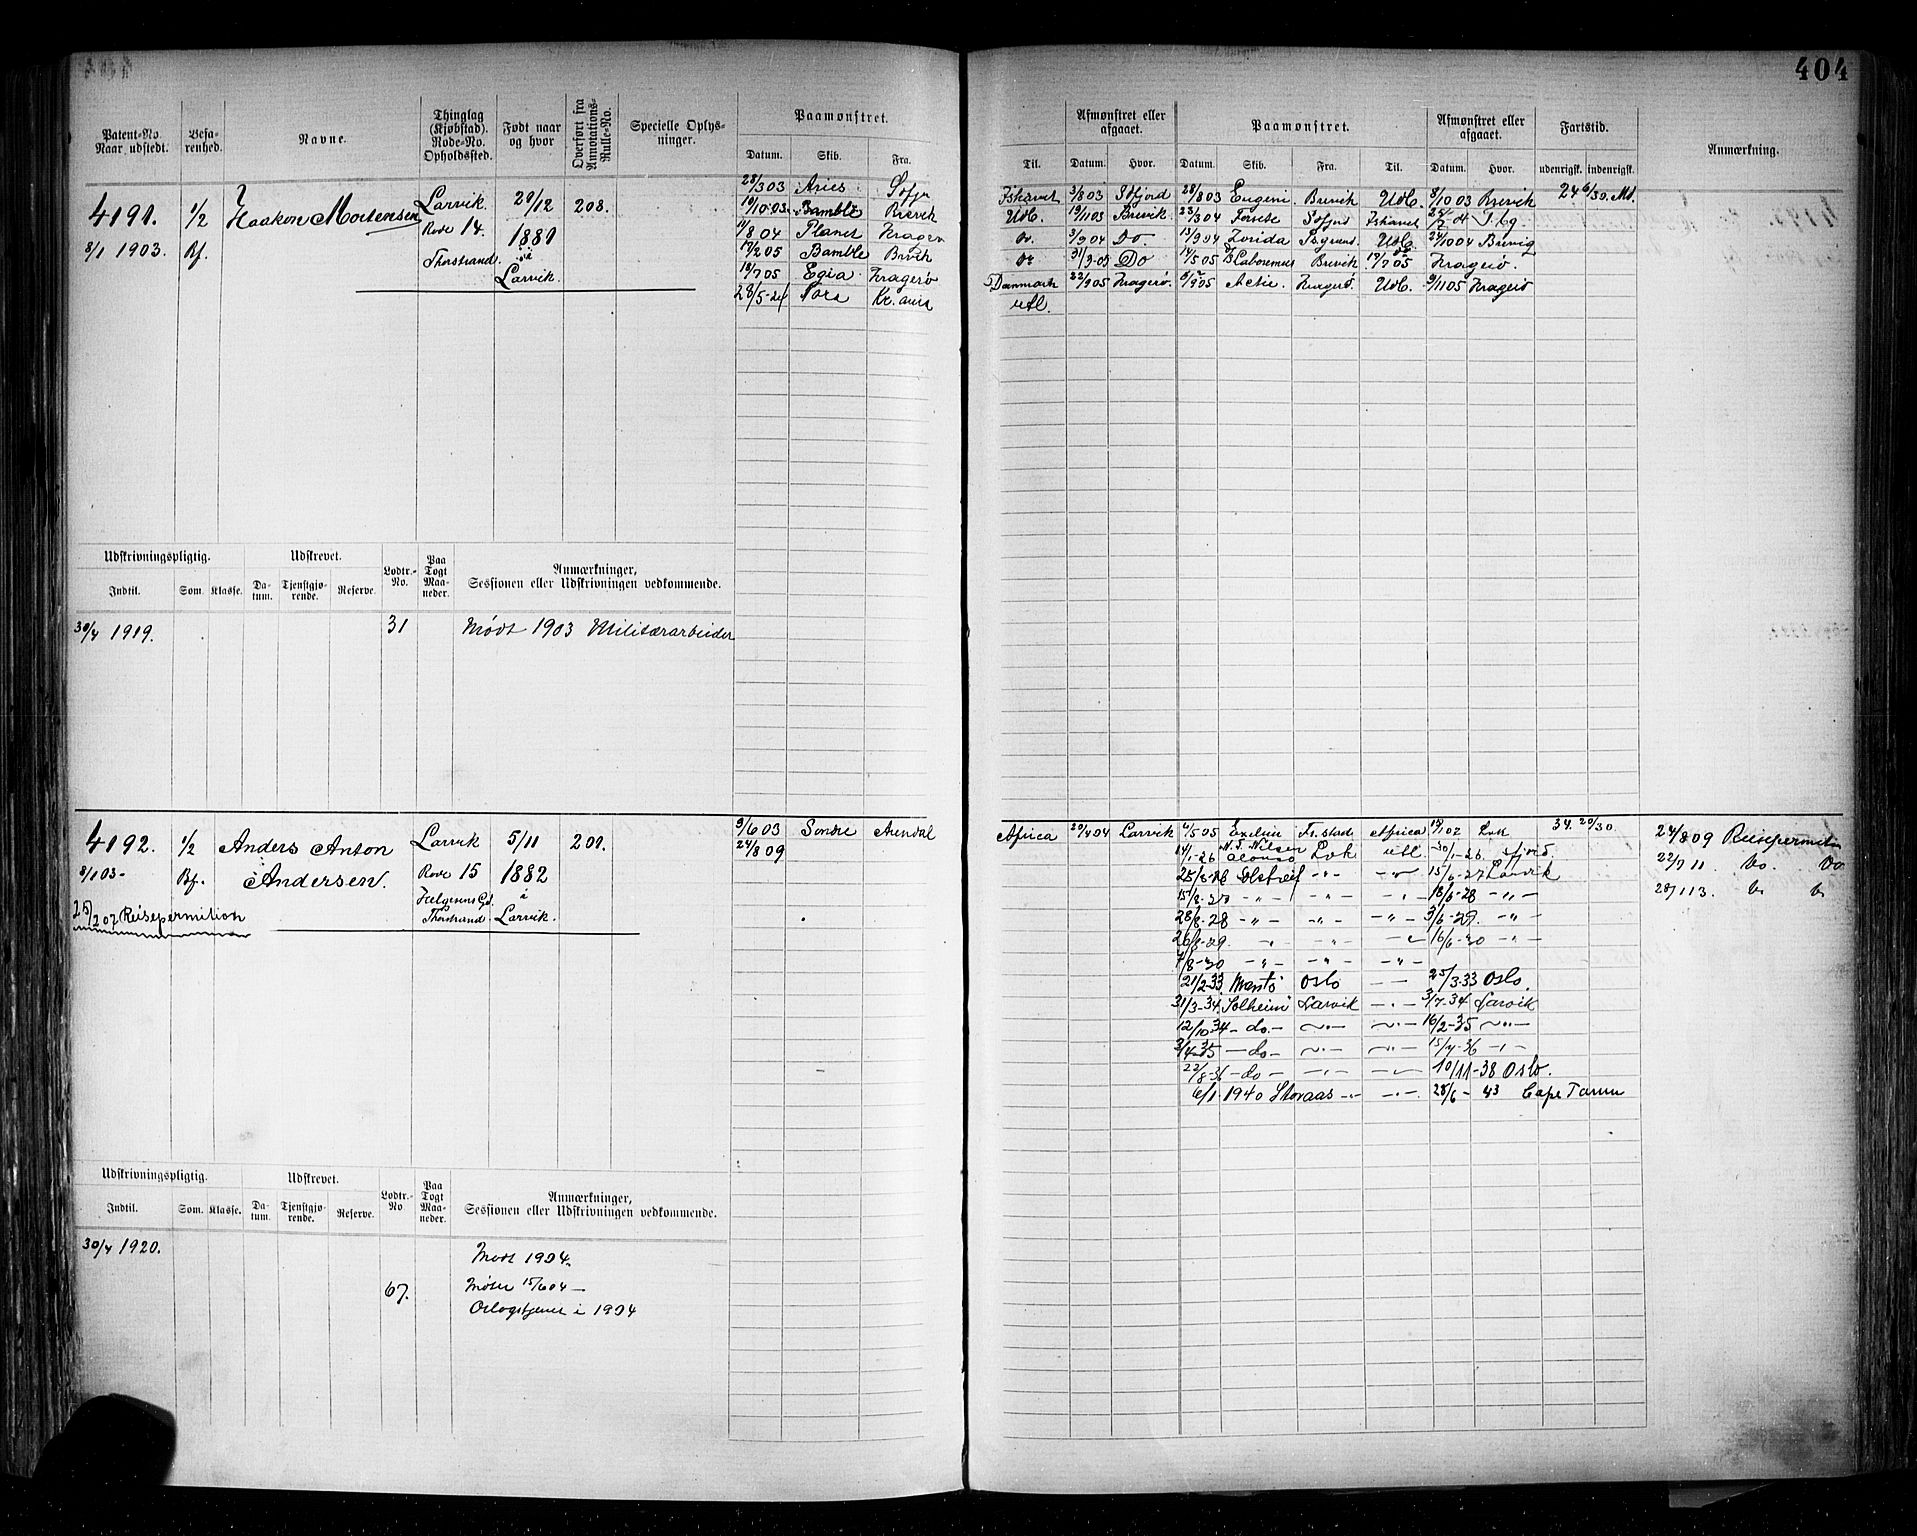 404
Patent-No. Naar udstedt.
Befarenhed.
Navne.
Thinglag (Kjøbstad). Rode-No. Opholdssted.
Født naar og hvor
Overført fra Annotations-Rulle-No.
Specielle Oplysninger.
Paamønstret.
Datum. Skib. Fra.
Til.
Afmønstret eller afgaaet.
Datum. Hvor.
Paamønstret.
Datum. Skib. Fra. Til.
Afmønstret eller afgaaet.
Datum. Hvor.
Fartstid.
udenrigsk. indenrigsk.
Anmærkning.
4191. 1/2 Haakon Mortensen Larvik 29/12 208.
8/1 1903. Bf. Rode 14. 1881
Thorstrand. i
Larvik.
28/3 03 Aries Ishavet 3/8 03 28/8 03 Eugeni Brevik Udl. 8/10 03 Brevik 24 6/30. Md.
10/10 03 Bamble Brevik Udl. 19/11 03 Brevik 23/3 04 Ishavet
8 04 Planet Kragerø do. 3/9 04 Do. 13/9 04 Zorida Udl. 24/10 04 Brevig
17/2 05 Bamble Brvik 31/3 05 Do 14/5 05 Brevik 17/7 05 Kragerø.
19/7 05 Egia Kragerø Danmark 22/9 05 Kragerø. Activ. Kragerø. Udl. 9/11 05 Kragerø
28/5-24 Tora Kr.ania utl.
Udskrivningspligtig. Udskrevet. Lodtr.-No. Paa Togt Maaneder. Anmærkninger, Sessionen eller Udskrivningen vedkommende.
Indtil. Som. Klasse. Datum. Tjenstgjørende. Reserve.
30/4 1919. 31 Mødt 1903 Militærarbeider
4192. 1/2 Anders Anton Larvik 5/11 209. 9/6 03 Søndre Arendal Africa 29/4 04 Larvik 6/5 05 Excelsior Fr.stad Africa 34. 20/30 24/8 09 Reisepermition
8/1 03- Bf. Andersen. Rode 15 1882 24/8 09 14/1-26 N. T. Nielsen Alonso Lvk utl. 30/1-26. Sfjord. 22/7 11 Do. Do
25/2 07 Reisepermition Thorstrand i Larvik. 25/8-26 Solstreif -"- -"- 15/6-27 Larvik
15/8-27 -"- -"- -"- 18/6-28 -"-
28/8-28 -"- -"- -"- 3/6-29. -"-
26/8-29. -"- -"- 16/6-30 -"-
7/8-30 -"- -"- -"-
21/2-33 Oslo -- 25/3-33 Oslo.
31/3-34. Solheim Larvik -"- 3/7-34 Larvik
12/10 34 -do- -"- -"- 16/2-35 -"-
3/4-35 -do- -"- -"- 15/4-36 -"-
22/8-36 -do- -"- -"- 10/11-38 Oslo.
6/1 1940 Storaas -"- -"- 28/6-43 Cape Town
Udskrivningspligtig. Udskrevet. Lodtr.-No Paa Togt Maaneder. Anmærkninger, Sessionen eller Udskrivningen vedkommende.
Indtil. Som. Klasse. Datum. Tjenstgjørende. Reserve.
30/4 1920. Mødt 1904.
67. Møter 15/6 04 —
Orlogstjeneste i 1904